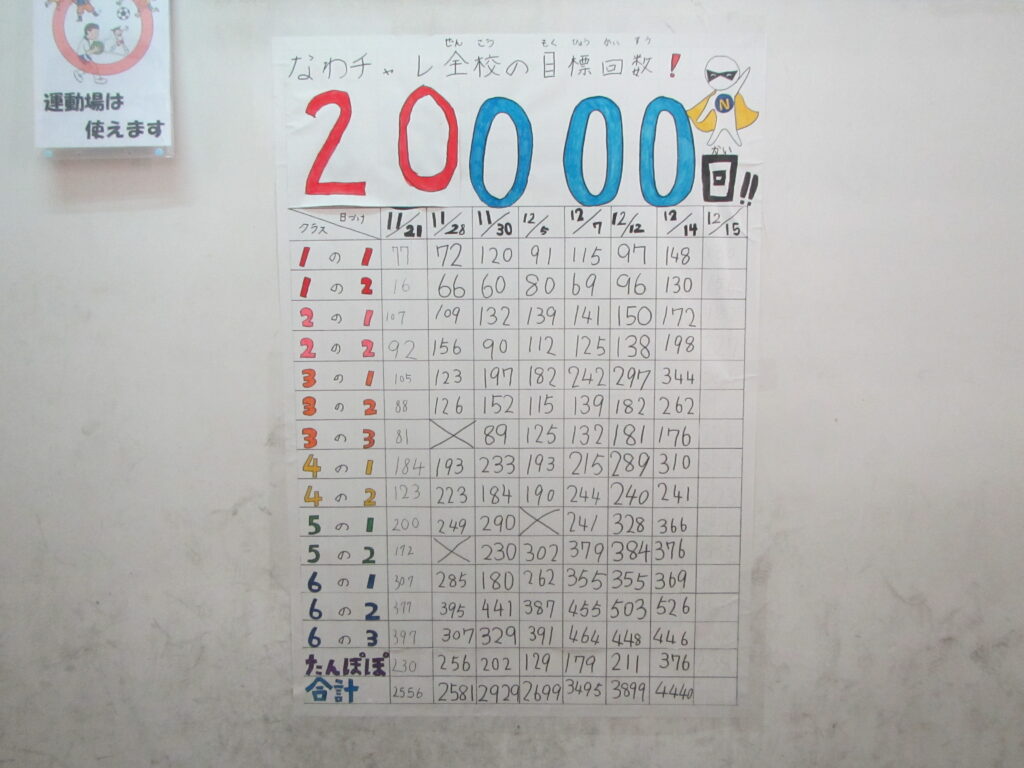 運動場は
使えます
ぜん こう もく ひょう かい すう
なわチャレ全校の目標回数!
20000
N
かい
回!!
日づけ
クラス 11/21 11/28 11/30 12/5 12/7 12/12 12/14 12/15
1の1 77 72 120 91 115 97 148
1の2 16 66 60 80 69 96 130
2の1 107 109 132 139 141 150 172
2の2 92 156 90 112 125 138 198
3の1 105 123 197 182 242 297 344
3の2 88 126 152 115 139 182 262
3の3 81 89 125 132 181 176
4の1 184 193 233 193 215 289 310
4の2 123 223 184 190 244 240 241
5の1 200 249 290 241 328 366
5の2 172 230 302 379 384 376
6の1 307 285 180 262 355 355 369
6の2 377 395 441 387 455 503 526
6の3 397 307 329 391 464 448 446
たんぽぽ 230 256 202 129 179 211 376
合計 2556 2581 2929 2699 3495 3899 4440